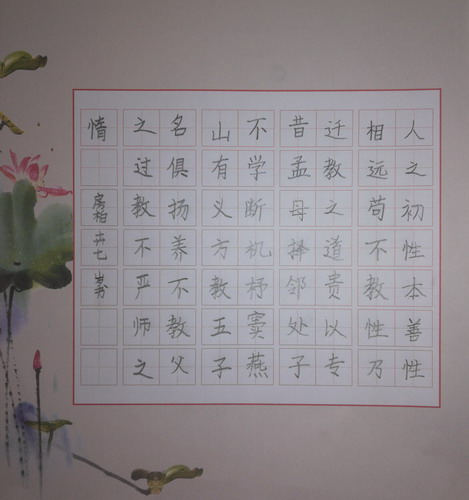 人之初性本善性
相远苟不教性乃
迁教之道贵以专
昔孟母择邻处子
不学断机杼窦燕
山有义方教五子
名俱扬养不教父
之过教不严师之
惰
房柏卉七岁